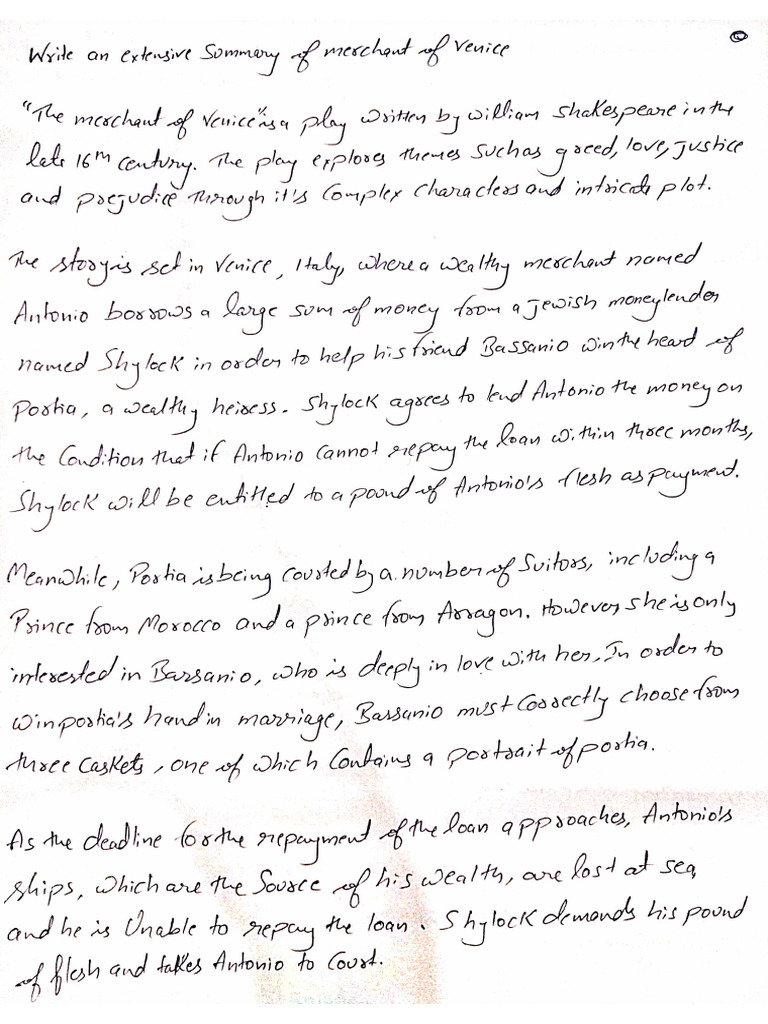 Write an extensive Summary of merchant of Venice
"The merchant of Venice" is a play written by William Shakespeare in the
late 16th century. The play explores themes such as greed, love, justice
and prejudice through it's complex characters and intricate plot.
The story is set in Venice, Italy, where a wealthy merchant named
Antonio borrows a large sum of money from a jewish moneylender
named Shylock in order to help his friend Bassanio win the heard of
Portia, a wealthy heiress. Shylock agrees to lend Antonio the money on
the Condition that if Antonio cannot repay the loan within three months,
Shylock will be entitled to a pound of Antonio's flesh as payment.
Meanwhile, Portia is being courted by a number of Suitors, including a
Prince from Morocco and a prince from Arragon. However she is only
interested in Bassanio, who is deeply in love with her. In order to
win portia's hand in marriage, Bassanio must correctly choose from
three caskets, one of which Contains a portrait of portia.
As the deadline for the repayment of the loan approaches, Antonio's
ships, which are the Source of his wealth, are lost at sea,
and he is Unable to repay the loan. Shylock demands his pound
of flesh and takes Antonio to Court.